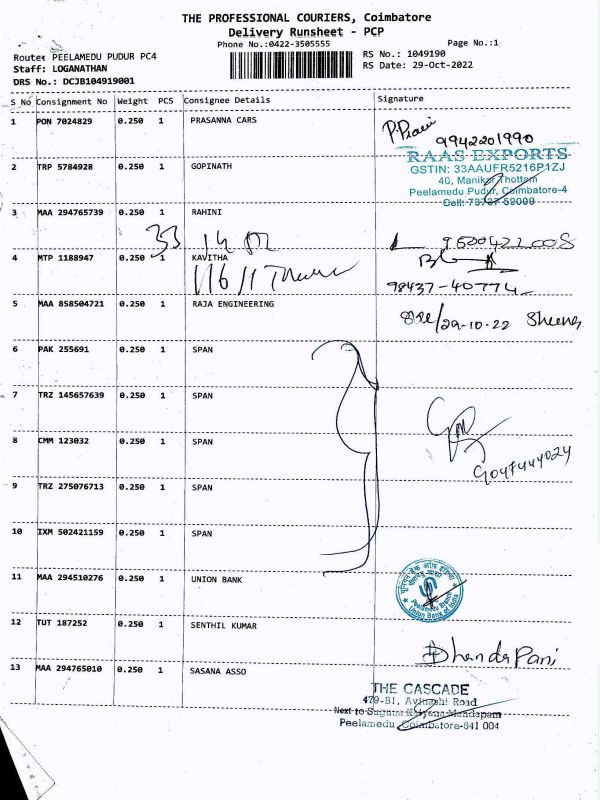 THE PROFESSIONAL COURIERS, Coimbatore
Delivery Runsheet - PCP
Phone No.:0422-3505555
Page No.:1
Route: PEELAMEDU PUDUR PC4
RS No.: 1049190
Staff: LOGANATHAN
RS Date: 29-Oct-2022
DRS No.: DCJB104919001
S No Consignment No Weight PCS Consignee Details Signature
1 PON 7024829 0.250 1 PRASANNA CARS
9942201990
RAAS EXPORTS
GSTIN: 33AAUFR5216P1ZJ
2 TRP 5784928 0.250 1 GOPINATH
40, Manikar Thottam
Peelamedu Pudur, Coimbatore-4
Cell: 73737 59009
3 MAA 294765739 0.250 1 RAHINI
33
9620422008
4 MTP 1188947 0.250 1 KAVITHA
98437-40774
5 MAA 858504721 0.250 1 RAJA ENGINEERING
29-10-22
6 PAK 255691 0.250 1 SPAN
7 TRZ 145657639 0.250 1 SPAN
8 CMM 123032 0.250 1 SPAN
9047444024
9 TRZ 275076713 0.250 1 SPAN
10 IXM 502421159 0.250 1 SPAN
11 MAA 294510276 0.250 1 UNION BANK
यूनियन बैंक ऑफ इंडिया
Peelamedu Branch
Union Bank of India
12 TUT 187252 0.250 1 SENTHIL KUMAR
DhandaPani
13 MAA 294765010 0.250 1 SASANA ASSO
THE CASCADE
479-B1, Avinashi Road
Next to Suguna Kalyana Mandapam
Peelamedu, Coimbatore-641 004